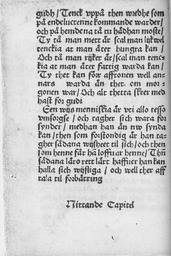 gudh / Tenck vppå then wredhe som
på endelucten e kommande warder /
och på hendena tå tu hådhan moste /
Ty tå man mett är skal man lijkwel
tenckia at man åter hungra kan /
Och tå man rijker är / skal man tenc-
kia at man åter fattig warda kan /
Ty thet kan för afftonen well an-
nars warda än thet om mor-
gonen war / Och alt thetta skeer med
hast for gudi
Een wijs menniskia är vti allo tesso
vansorgse / och tagher sich wara for
synder / medhan han än nw synda
kan / then som forstondig är han tag
gher sådana wijsheet til sich / och then
som henne fåt hå loffuar henne / Then
sådana läro rett lärt haffuer han kan
halla sich wijsliga / och well ther aff
tala til forbåttring
Nittande Capitel